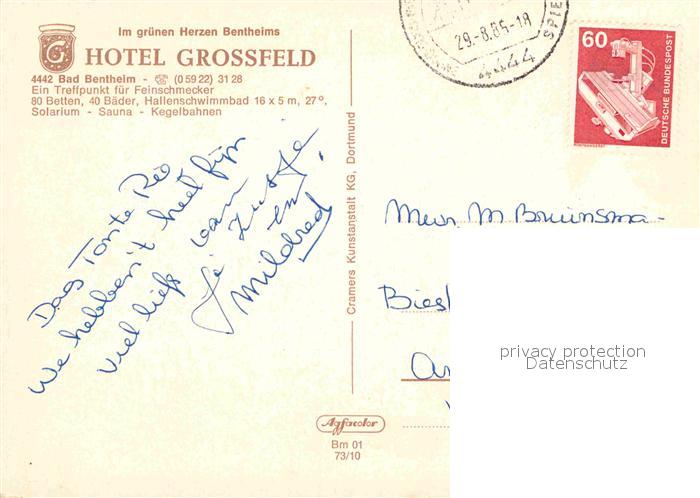 Im grünen Herzen Bentheims
HOTEL GROSSFELD
4442 Bad Bentheim - ☎ (0 59 22) 31 28
Ein Treffpunkt für Feinschmecker
80 Betten, 40 Bäder, Hallenschwimmbad 16 x 5 m, 27°,
Solarium - Sauna - Kegelbahnen
29.-8.85-18
4444
60
DEUTSCHE BUNDESPOST
Dag Tante
We hebben't heel fijn
veel liefs van
Je zusje
en
Mildred
Cramers Kunstanstalt KG, Dortmund
Mevr. M Bruinsma-
privacy protection
Datenschutz
Agfacolor
Bm 01
73/10